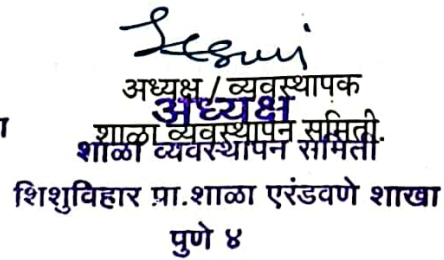 अध्यक्ष / व्यवस्थापक
अध्यक्ष
शाळा व्यवस्थापन समिती.
शाळा व्यवस्थापन समिती
शिशुविहार प्रा.शाळा एरंडवणे शाखा
पुणे ४